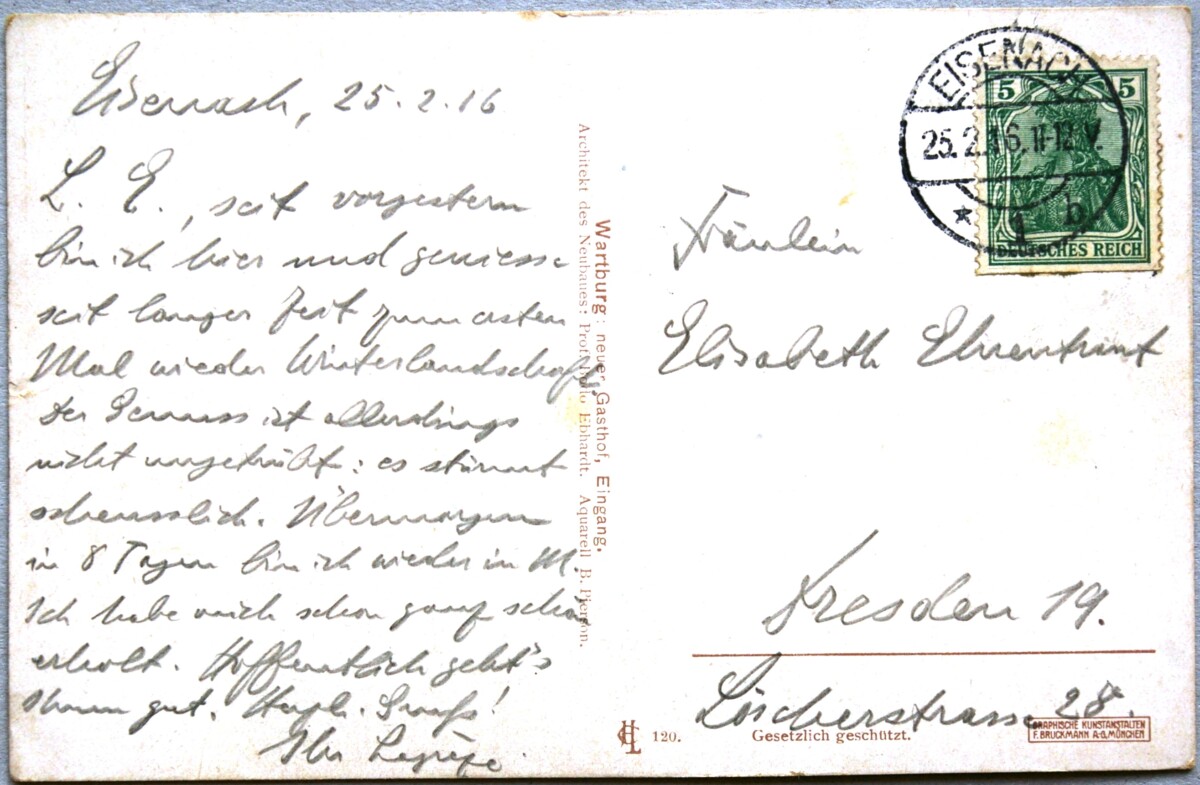 Eisenach, 25.2.16
L. E., seit vorgestern
bin ich hier und geniesse
seit langer Zeit zum ersten
Mal wieder Winterlandschaft.
Der Genuss ist allerdings
nicht ungetrübt: es stürmt
scheusslich. Übermorgen
in 8 Tagen bin ich wieder in M.
Ich habe mich schon ganz schön
erholt. Hoffentlich geht's
Ihnen gut. Herzl. Gruss!
Ihr
Architekt des Neubaues: Prof. Bodo Ebhardt. Aquarell B. Pierson.
Wartburg: neuer Gasthof, Eingang.
EISENACH
25.2.16.11-12 V.
* 1 b
5 5
DEUTSCHES REICH
Fräulein
Elisabeth Ehrentraut
Dresden 19.
Löscherstrasse 28.
120.
Gesetzlich geschützt.
GRAPHISCHE KUNSTANSTALTEN
F. BRUCKMANN A-G. MÜNCHEN